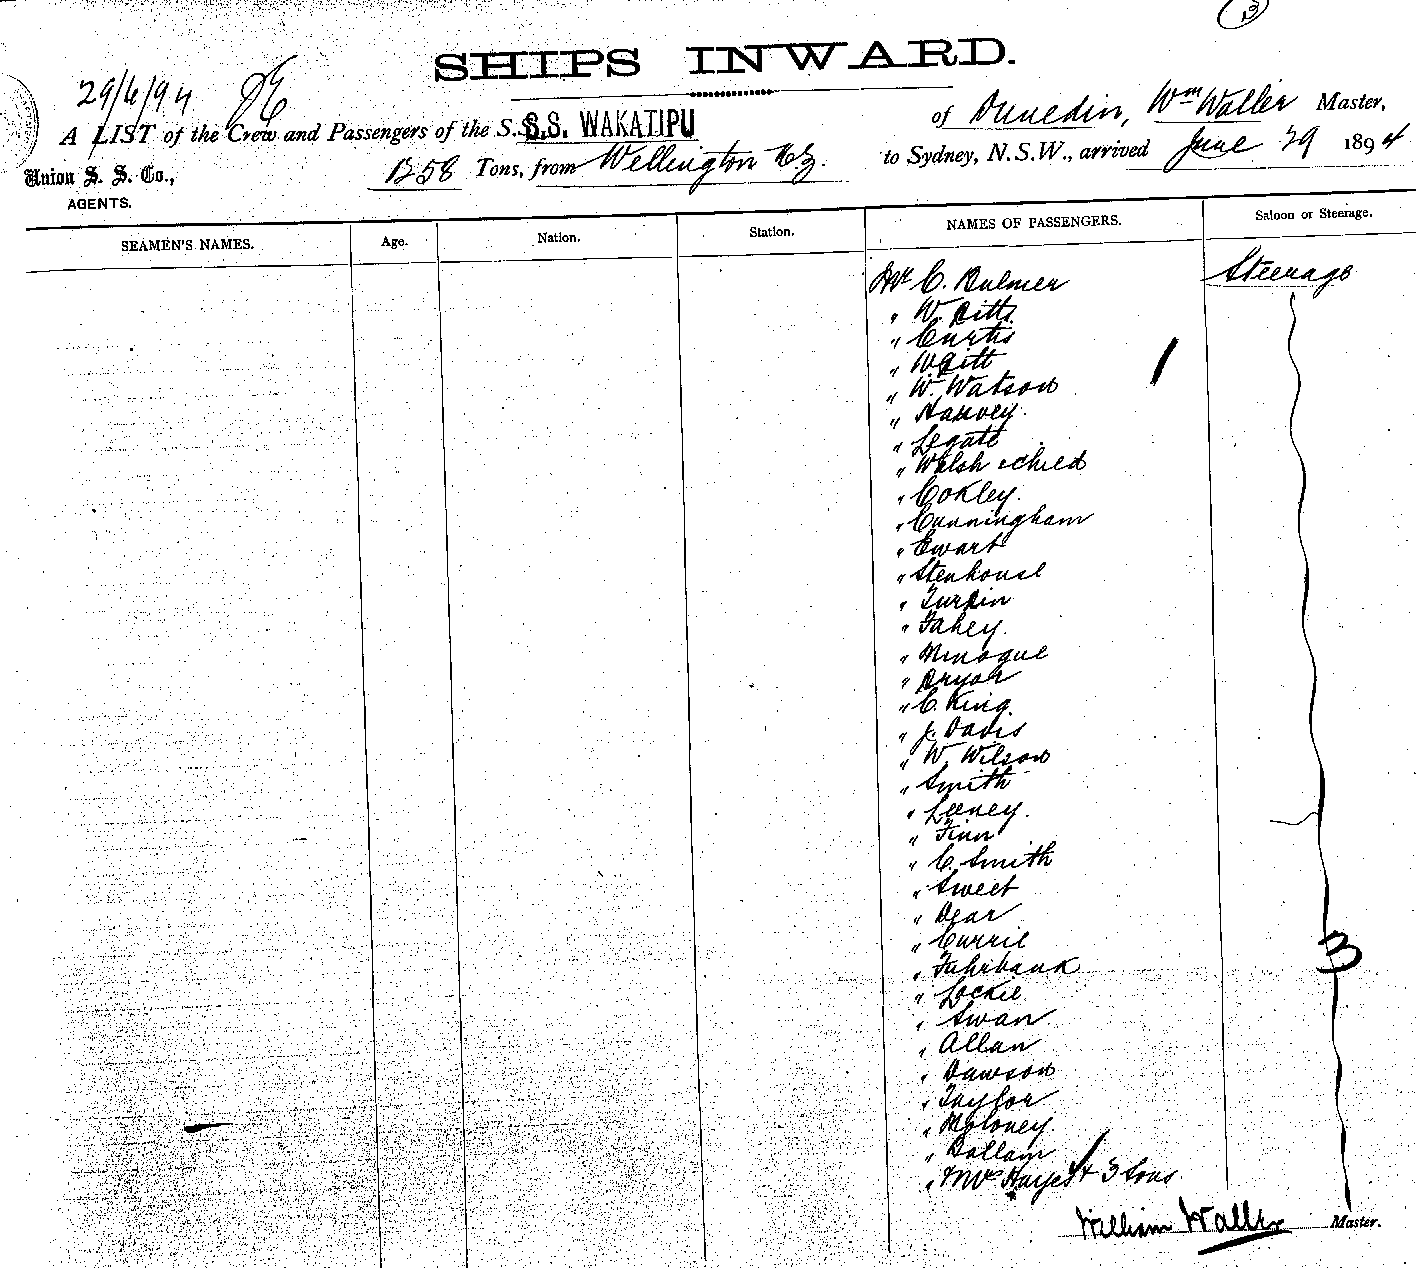 SHIPS INWARD.
29/6/94
of Dunedin, Wm Waller Master,
A LIST of the Crew and Passengers of the S.S. S.S. WAKATIPU
1258 Tons, from Wellington N.Z. to Sydney, N.S.W., arrived June 29 1894
Union S. S. Co.,
AGENTS.
SEAMEN'S NAMES. Age. Nation. Station. NAMES OF PASSENGERS. Saloon or Steerage.
Mr C. Bulmer Steerage
" W. Pitts
" Curtis
" W Pitt
" W. Watson
" Harvey.
" Legatt
" Walsh & child
" Cokley.
" Cunningham
" Ewart
" Stenhouse
" Turpin
" Fahey.
" Minogue
" 
" C. King.
" J. Davis
" W. Wilson
" Smith
" Leeney.
" Finn
" C. Smith
" Sweet
" Dear
" Currie
" Fuhrbank
" Lockie
" Swan
" Allan
" Dawson
" Taylor
" Moloney.
" Ballam
" Mrs Hayes & 3 Sons
3
William Waller Master.